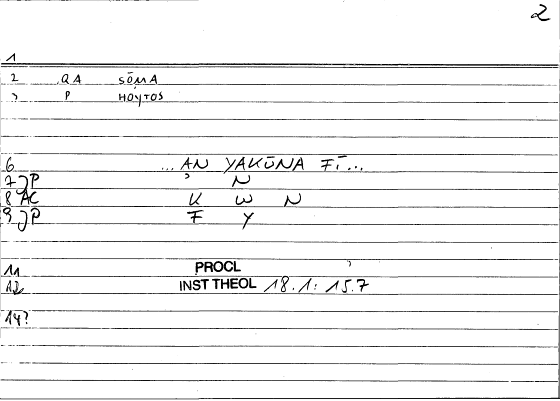 2
1
2 QA SŌMA
3 P HOYTOS
6 ... AN YAKŪNA FĪ...
7 JP ʾ N
8 AC K W N
9 JP F Y
11 PROCL ʾ
12 INST THEOL 18.1: 15.7
14?